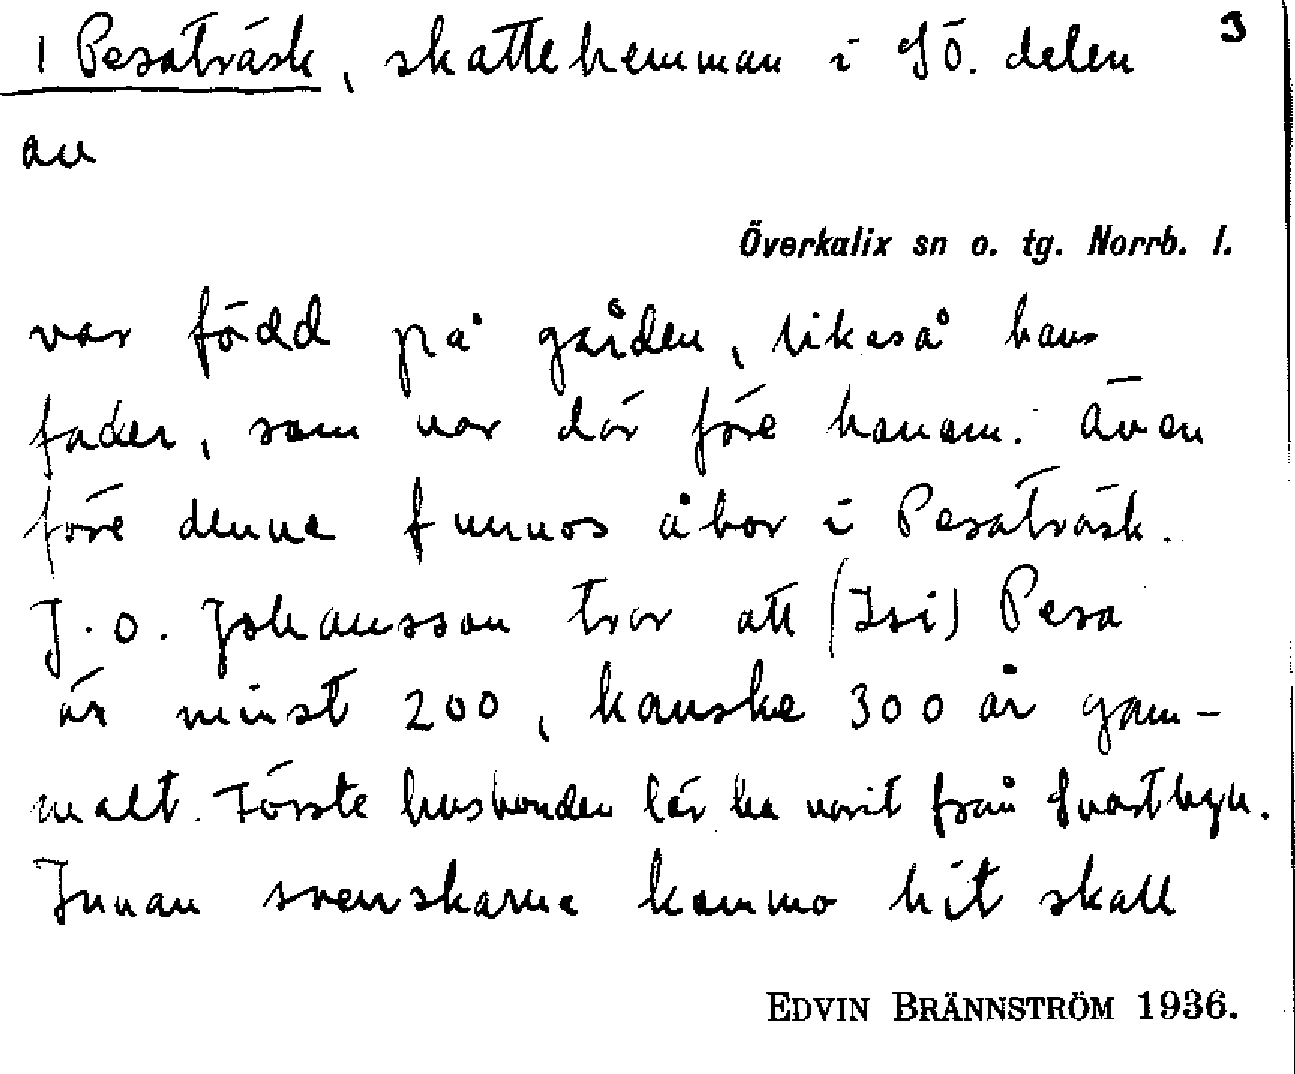 3
1 Pesaträsk, skattehemman i SÖ. delen
av
Överkalix sn o. tg. Norrb. l.
var född på gården, likaså hans
fader, som var där före honom. Även
före denne funnos åbor i Pesaträsk.
J. O. Johansson tror att (Isi) Pesa
är minst 200, kanske 300 år gam-
malt. Förste husbonden lär ha varit från Svartbyn.
Innan svenskarna kommo hit skall
EDVIN BRÄNNSTRÖM 1936.